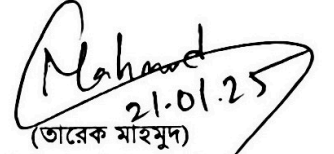 Mahmud
21.01.25
(তারেক মাহমুদ)